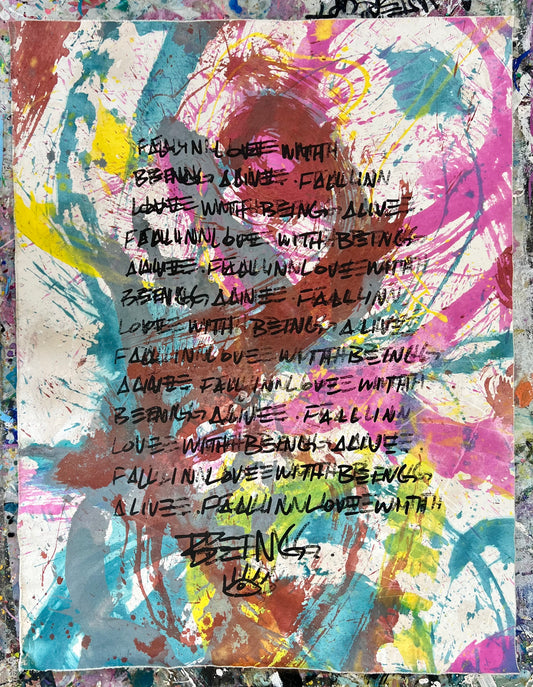 FALL IN LOVE WITH
BEING ALIVE. FALL IN
LOVE WITH BEING ALIVE.
FALL IN LOVE WITH BEING
ALIVE. FALL IN LOVE WITH
BEING ALIVE. FALL IN
LOVE WITH BEING ALIVE.
FALL IN LOVE WITH BEING
ALIVE. FALL IN LOVE WITH
BEING ALIVE. FALL IN
LOVE WITH BEING ALIVE.
FALL IN LOVE WITH BEING
ALIVE. FALL IN LOVE WITH
BEING.